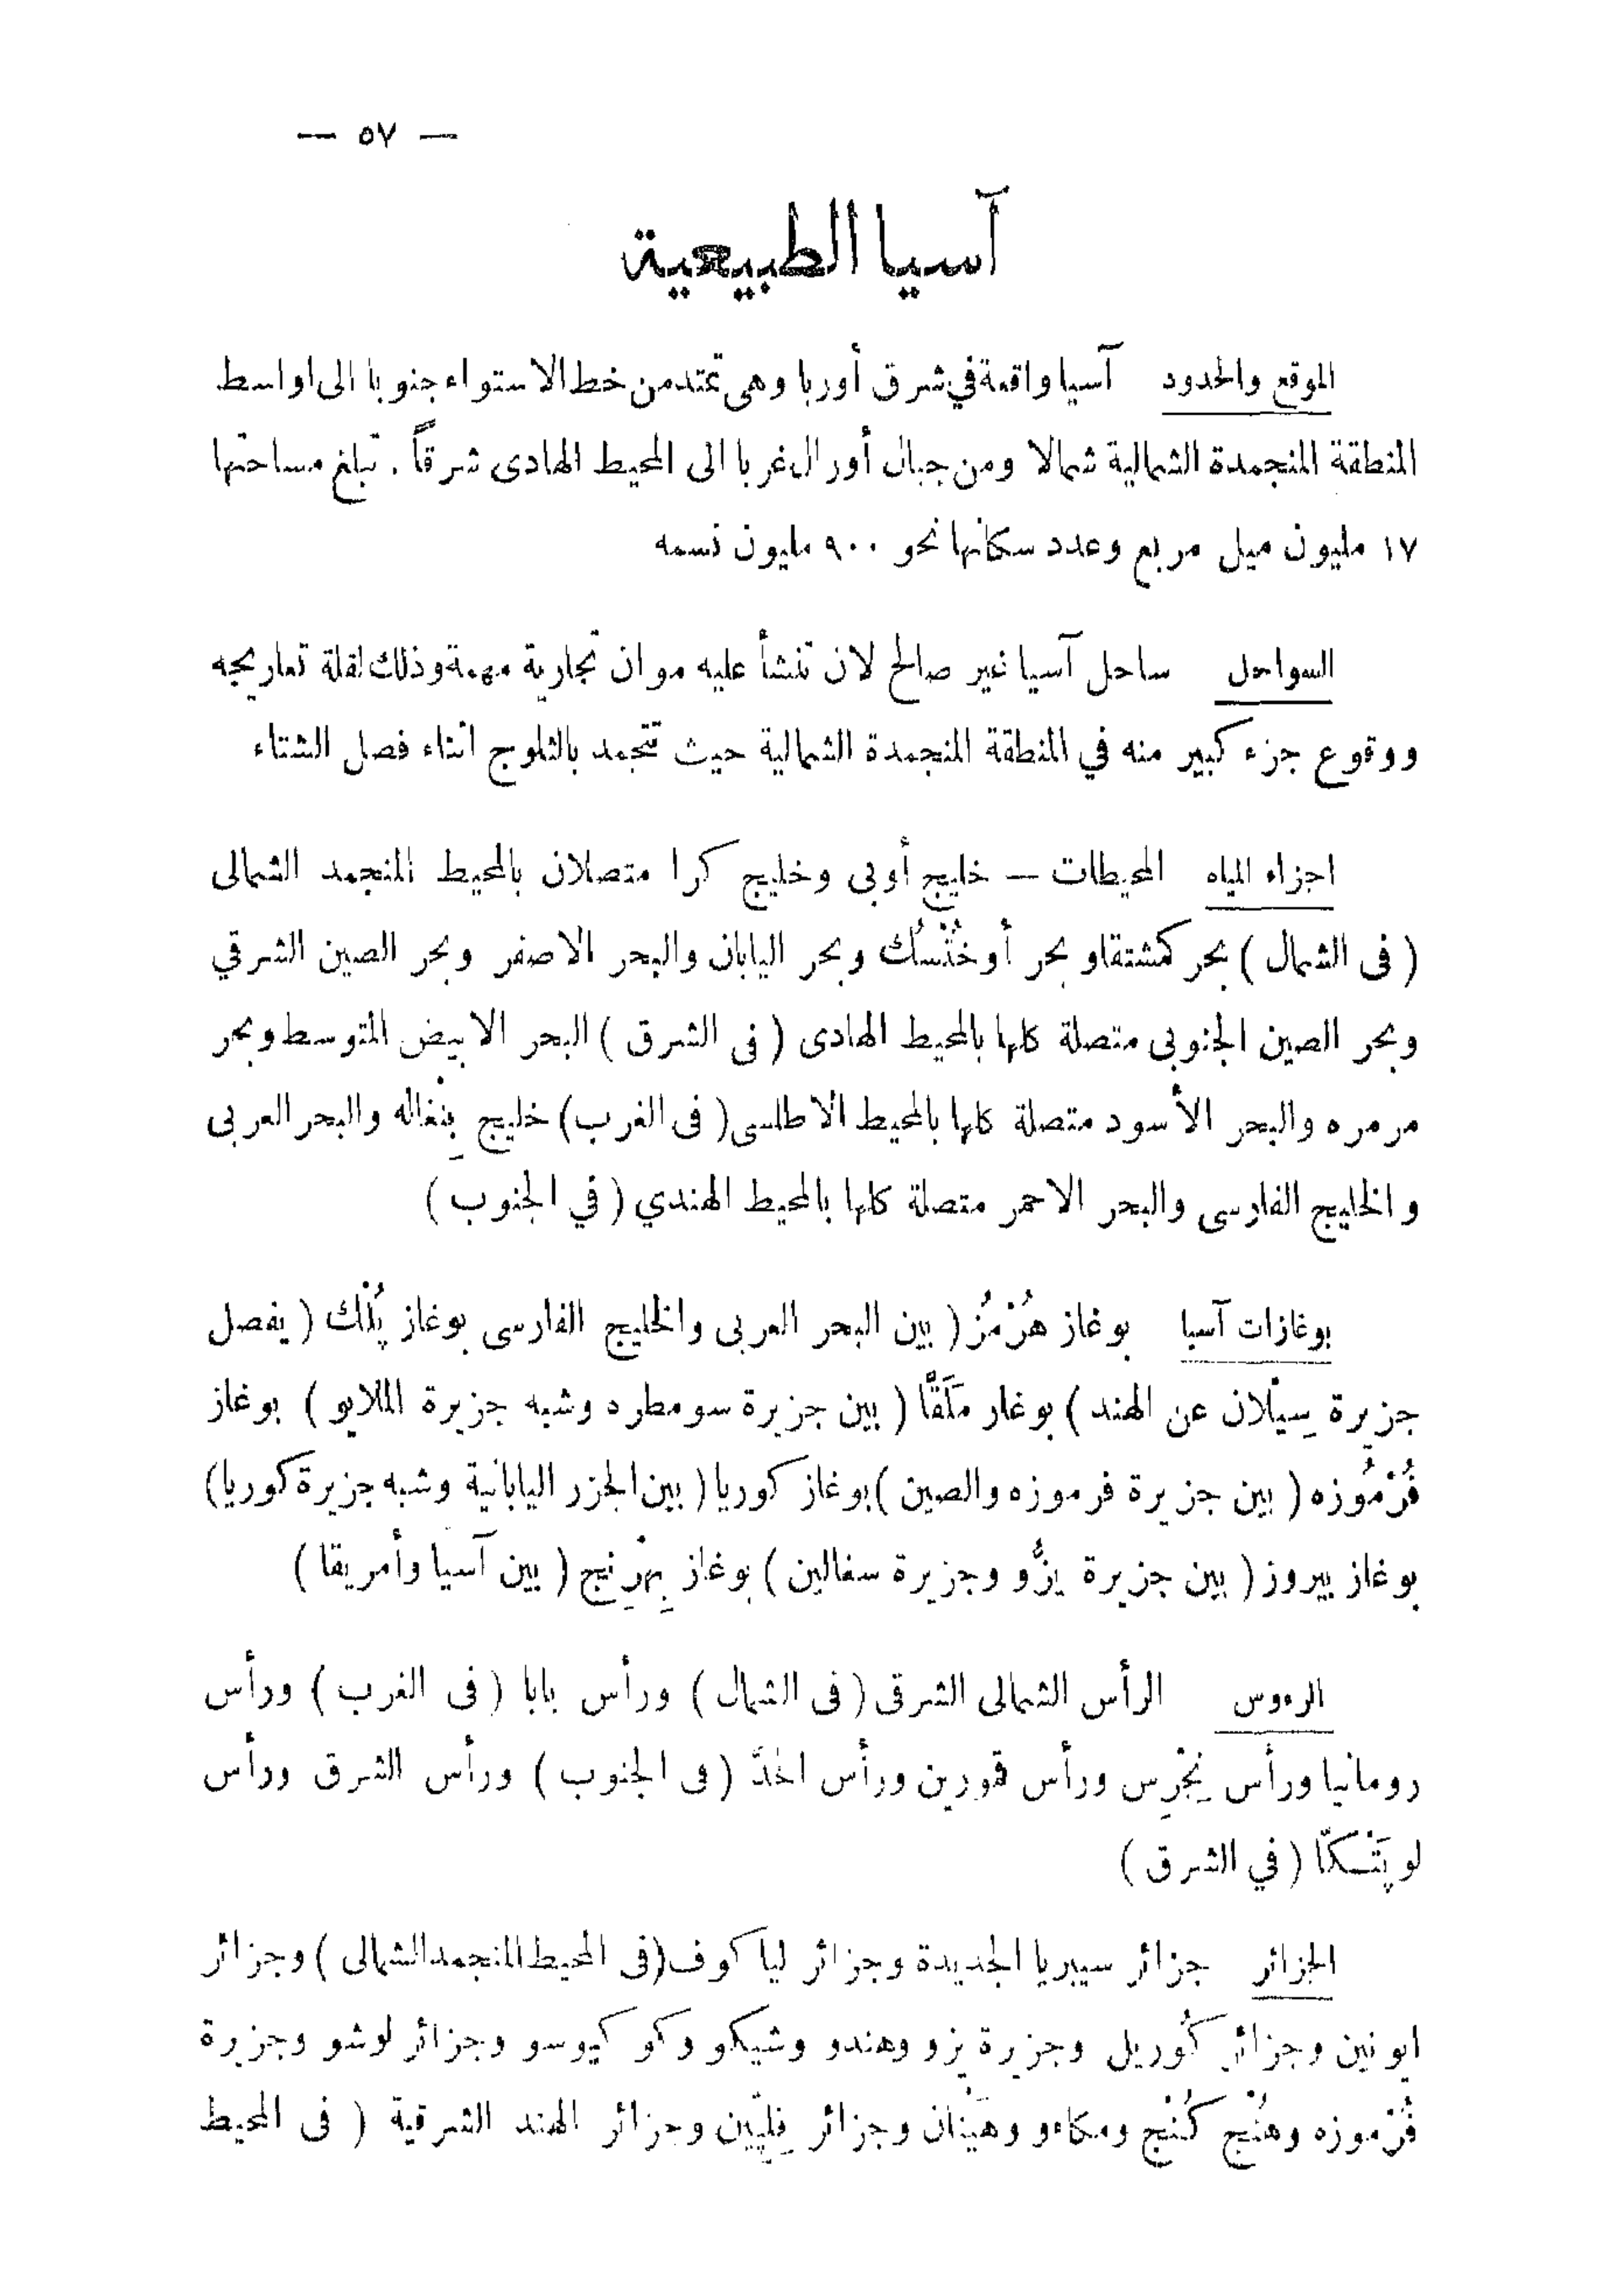 — ٥٧ —
آسيا الطبيعية
الموقع والحدود آسيا واقعة في شرق أوربا وهى تمتد من خط الاستواء جنوبا الى اواسط
المنطقة المنجمدة الشمالية شمالا ومن جبال أورال غربا الى المحيط الهادى شرقاً . تبلغ مساحتها
١٧ مليون ميل مربع وعدد سكانها نحو ٩٠٠ مليون نسمه
السواحل ساحل آسيا غير صالح لان تنشأ عليه موان تجارية مهمة وذلك لقلة تعاريجه
ووقوع جزء كبير منه في المنطقة المنجمدة الشمالية حيث تتجمد بالثلوج اثناء فصل الشتاء
اجزاء المياه المحيطات — خليج أوبى وخليج كرا متصلان بالمحيط المنجمد الشمالى
( فى الشمال ) بحر كمشتقا وبحر أوخُتْسُك وبحر اليابان والبحر الاصفر وبحر الصين الشرقي
وبحر الصين الجنوبى متصلة كلها بالمحيط الهادى ( فى الشرق ) البحر الابيض المتوسط وبحر
مرمره والبحر الأسود متصلة كلها بالمحيط الاطلسى ( فى الغرب ) خليج بِنْغاله والبحر العربى
والخليج الفارسى والبحر الاحمر متصلة كلها بالمحيط الهندي ( في الجنوب )
بوغازات آسيا بوغاز هُرْمُز ( بين البحر العربى والخليج الفارسى بوغاز پُلْك ( يفصل
جزيرة سِيْلان عن الهند ) بوغار مَلَقَّا ( بين جزيرة سومطره وشبه جزيرة الملايو ) بوغاز
فُرْمُوزه ( بين جزيرة فرموزه والصين ) بوغاز كوريا ( بين الجزر اليابانية وشبه جزيرة كوريا )
بوغاز بيروز ( بين جزيرة يزُّو وجزيرة سغالين ) بوغاز بِهْرِنج ( بين آسيا وأمريقا )
الرءوس الرأس الشمالى الشرقى ( فى الشمال ) ورأس بابا ( فى الغرب ) ورأس
رومانيا ورأس نِجْرِس ورأس قمورين ورأس الحَدّ ( فى الجنوب ) ورأس الشرق ورأس
لوپَتْسكّا ( في الشرق )
الجزائر جزائر سيبريا الجديدة وجزائر لياكوف ( فى المحيط المنجمد الشمالى ) وجزائر
ايونين وجزائر كُوريل وجزيرة يزو وهندو وشيكو وكو كيوسو وجزائر لوشو وجزيرة
فُرْموزه وهُنْج كُنْج ومكاءو وهَيْنان وجزائر فِلِپّين وجزائر الهند الشرقية ( فى المحيط